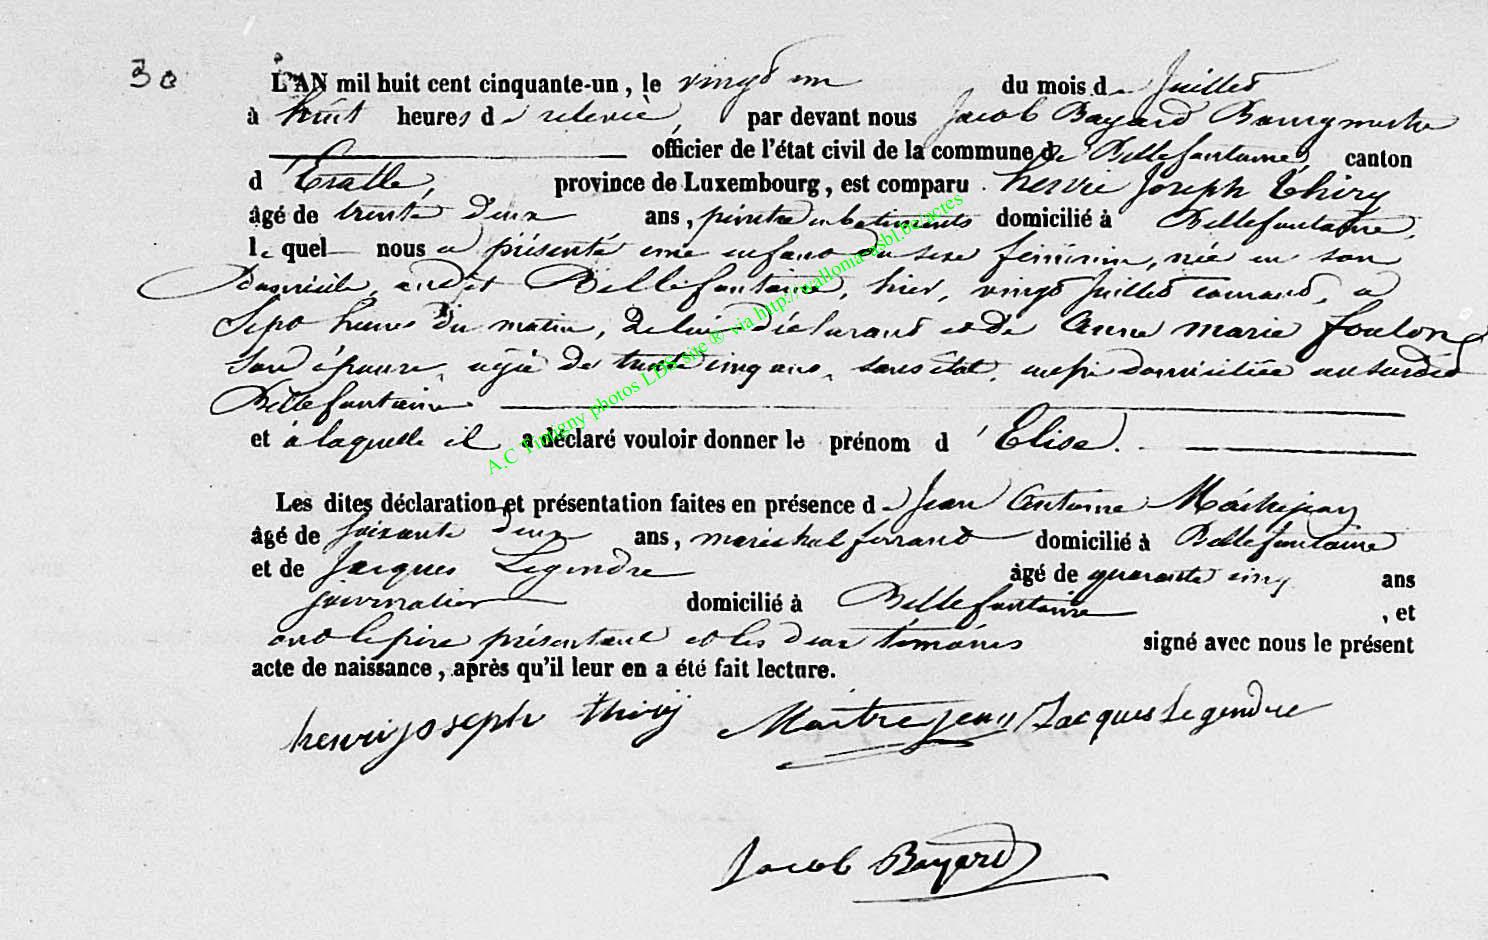 30
L'AN mil huit cent cinquante-un, le vingt un du mois de Juillet
à huit heures de relevée, par devant nous Jacob Bayard Bourgmestre
officier de l'état civil de la commune de Bellefontaine, canton
d'Etalle, province de Luxembourg, est comparu henri Joseph Thiry
âgé de trente deux ans, peintre en batiments domicilié à Bellefontaine,
lequel nous a présenté une enfant du sexe féminin, née en son
Domicile, audit Bellefontaine, hier, vingt Juillet courant, a
Sept heures du matin, de lui déclarant et de Anne marie foulon
son épouse, agée de trente cinq ans, sans état, aussi domiciliée au susdit
Bellefontaine
et à laquelle il a déclaré vouloir donner le prénom d'Elise.
Les dites déclaration et présentation faites en présence de Jean Antoine Maitrejean
âgé de soixante deux ans, maréchal ferrant domicilié à Bellefontaine
et de Jacques Legendre âgé de quarante cinq ans
journalier domicilié à Bellefontaine, et
ont le père présentant et les deux témoins signé avec nous le présent
acte de naissance, après qu'il leur en a été fait lecture.
henri joseph thiry Maitrejean Jacques Legendre
Jacob Bayard
A.C Tintigny photos LDS site ® via http://wallonia-asbl.be/actes